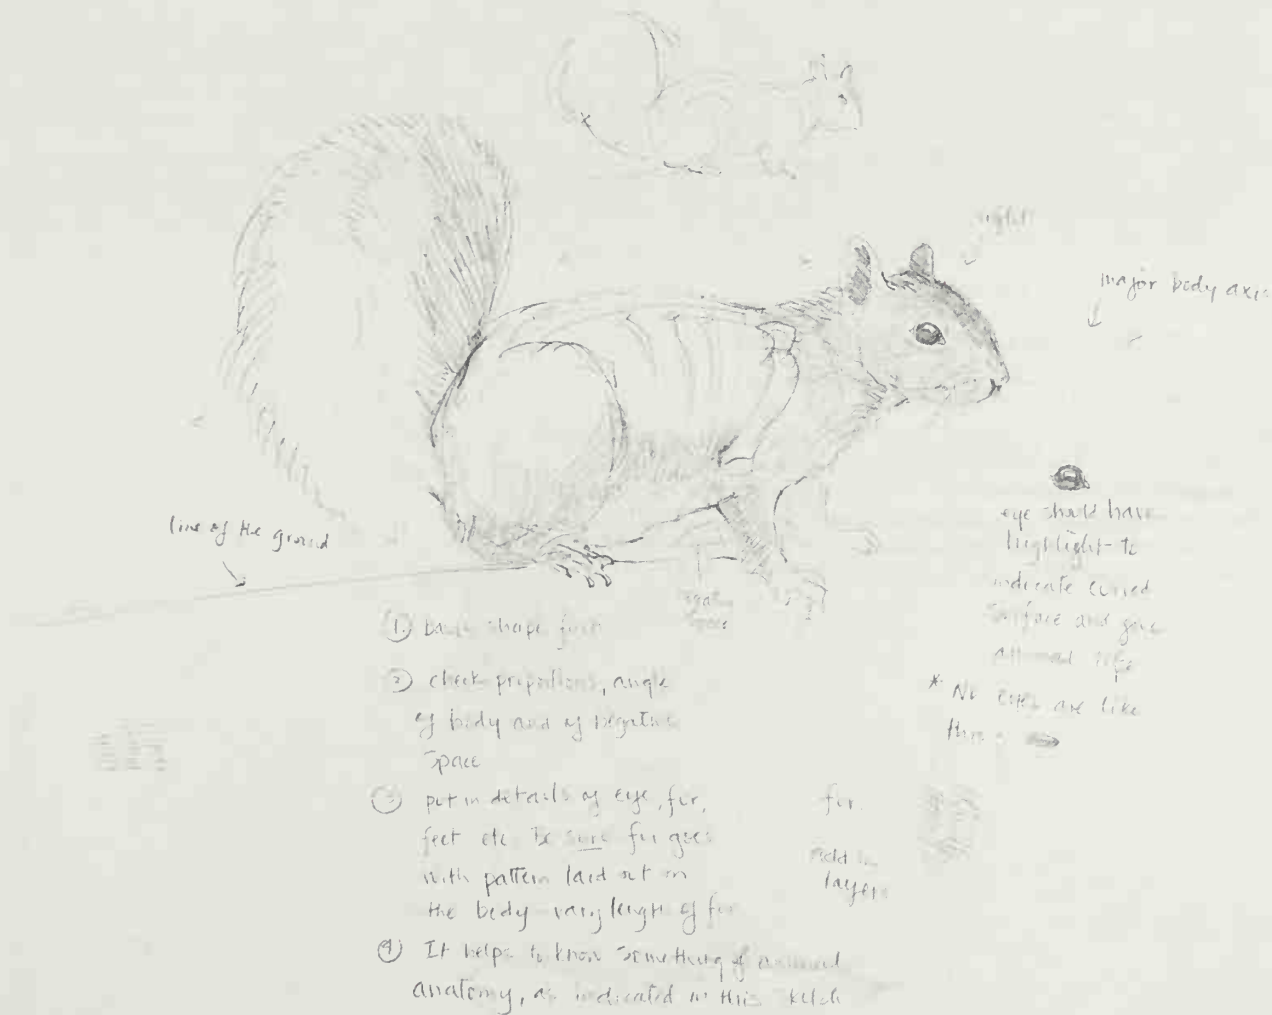 light
major body axis
line of the ground
eye should have
highlight to
indicate curved
surface and give
animal life
* No eyes are like
this
negative
space
① basic shape first
② check proportions, angle
of body and of negative
space
③ put in details of eye, fur,
feet etc Be sure fur goes
with pattern laid out on
the body vary length of fur
fur.
add in
layers
④ It helps to know something of animal
anatomy, as indicated in this sketch